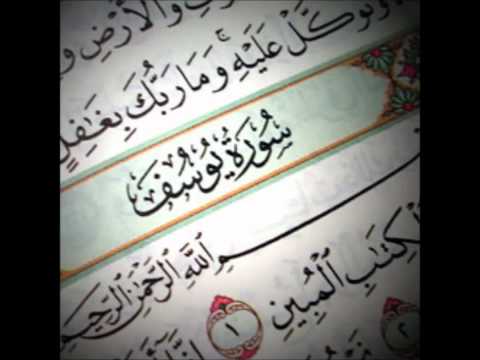 وَالْأَرْضِ
وَتَوَكَّلْ عَلَيْهِ ۚ وَمَا رَبُّكَ بِغَافِلٍ
سُورَةُ يُوسُفَ
ـمِ اللَّهِ الرَّحْمَٰنِ الرَّحِيمِ
الْكِتَابِ الْمُبِينِ ١ إِنَّا
٢